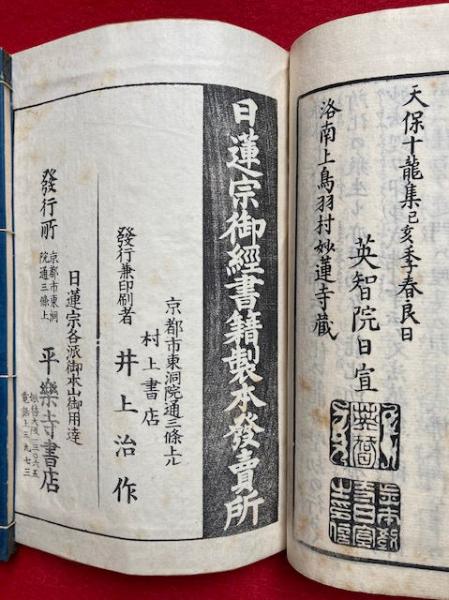 天保十龍集己亥季春良日
英智院日宣
洛南上鳥羽村妙蓮寺藏
日蓮宗御經書籍製本發賣所
京都市東洞院通三條上ル
村上書店
發行兼印刷者
井上治作
日蓮宗各派御本山御用達
發行所
京都市東洞
院通三條上
平樂寺書店